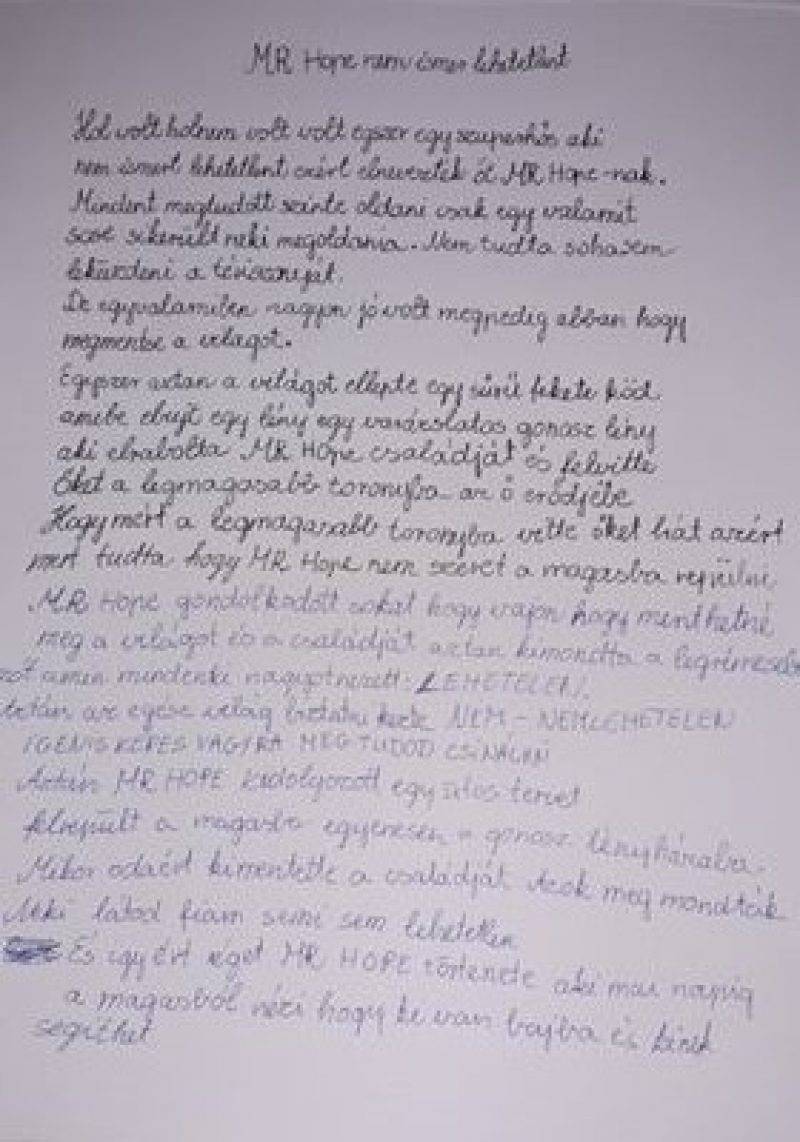 MR Hope nem ismer lehetetlent
Hol volt holnem volt volt egszer egy szuperhős aki
nem ismert lehetetlent ezért elnevezték őt MR Hope-nak.
Mindent megtudott szinte oldani csak egy valamit
sose sikerült neki megoldania. Nem tudta sohasem
leküzdeni a tériszonyját.
De egyvalamiben nagyon jó volt megpedig abban hogy
megmentse a világot.
Egyszer aztan a világot ellepte egy sűrű fekete köd
amibe elbujt egy lény egy varázslatos gonosz lény
aki elrabolta MR Hope családját és felvitte
Őket a legmagasabb toronyba az ő erődjébe
Hogy mért a legmagasabb toronyba vitte őket hát azért
mert tudta hogy MR Hope nem szeret a magasba repülni
MR Hope gondolkodott sokat hogy vajon hogy menthetné
meg a világot és a családját aztan kimondta a
amin mindenki nagyotnezett: LEHETELEN!
az egész világ biztatni kezte NEM - NEMLEHETELEN
IGENIS KÉPES VAGYRA MEG TUDOD CSINÁLNI
Aztán MR HOPE kidolgozott egy tervet
felrepült a magasba egyenesen a gonosz lényházába.
Mikor odaért kimentette a családját Azok meg mondták
Neki látod fiam semi sem lehetetlen
És igy ért véget MR HOPE története aki mai napig
a magasból nézi hogy ki van bajba és kinek
segíthet